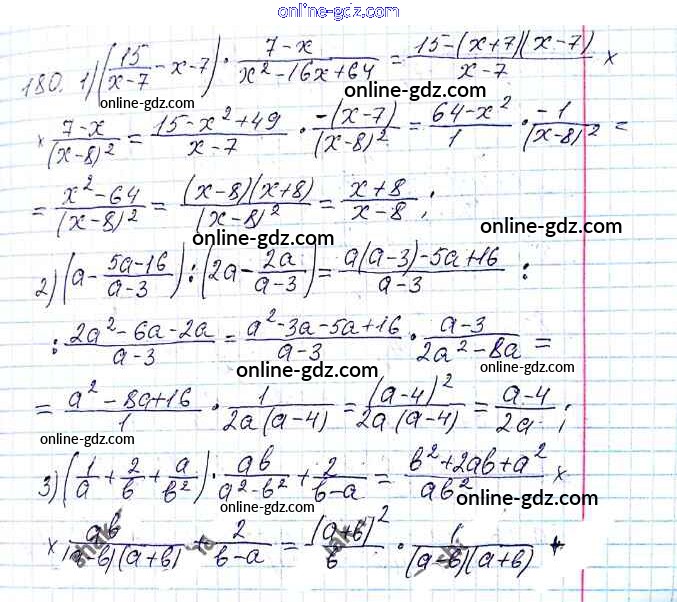 online-gdz.com
180. 1) (15/(x-7) - x - 7) · (7-x)/(x²-16x+64) = (15-(x+7)(x-7))/(x-7) ×
online-gdz.com online-gdz.com
× (7-x)/(x-8)² = (15-x²+49)/(x-7) · (-(x-7))/(x-8)² = (64-x²)/1 · (-1)/(x-8)² =
= (x²-64)/(x-8)² = ((x-8)(x+8))/(x-8)² = (x+8)/(x-8);
online-gdz.com online-gdz.com
2) (a - (5a-16)/(a-3)) : (2a - 2a/(a-3)) = (a(a-3)-5a+16)/(a-3) :
online-gdz.com online-gdz.com
: (2a²-6a-2a)/(a-3) = (a²-3a-5a+16)/(a-3) · (a-3)/(2a²-8a) =
online-gdz.com online-gdz.com
= (a²-8a+16)/1 · 1/(2a(a-4)) = (a-4)²/(2a(a-4)) = (a-4)/(2a);
online-gdz.com online-gdz.com
3) (1/a + 2/b + a/b²) · ab/(a²-b²) + 2/(b-a) = (b²+2ab+a²)/(ab²) ×
online-gdz.com online-gdz.com
× ab/((a-b)(a+b)) + 2/(b-a) = (a+b)²/b · 1/((a-b)(a+b)) +